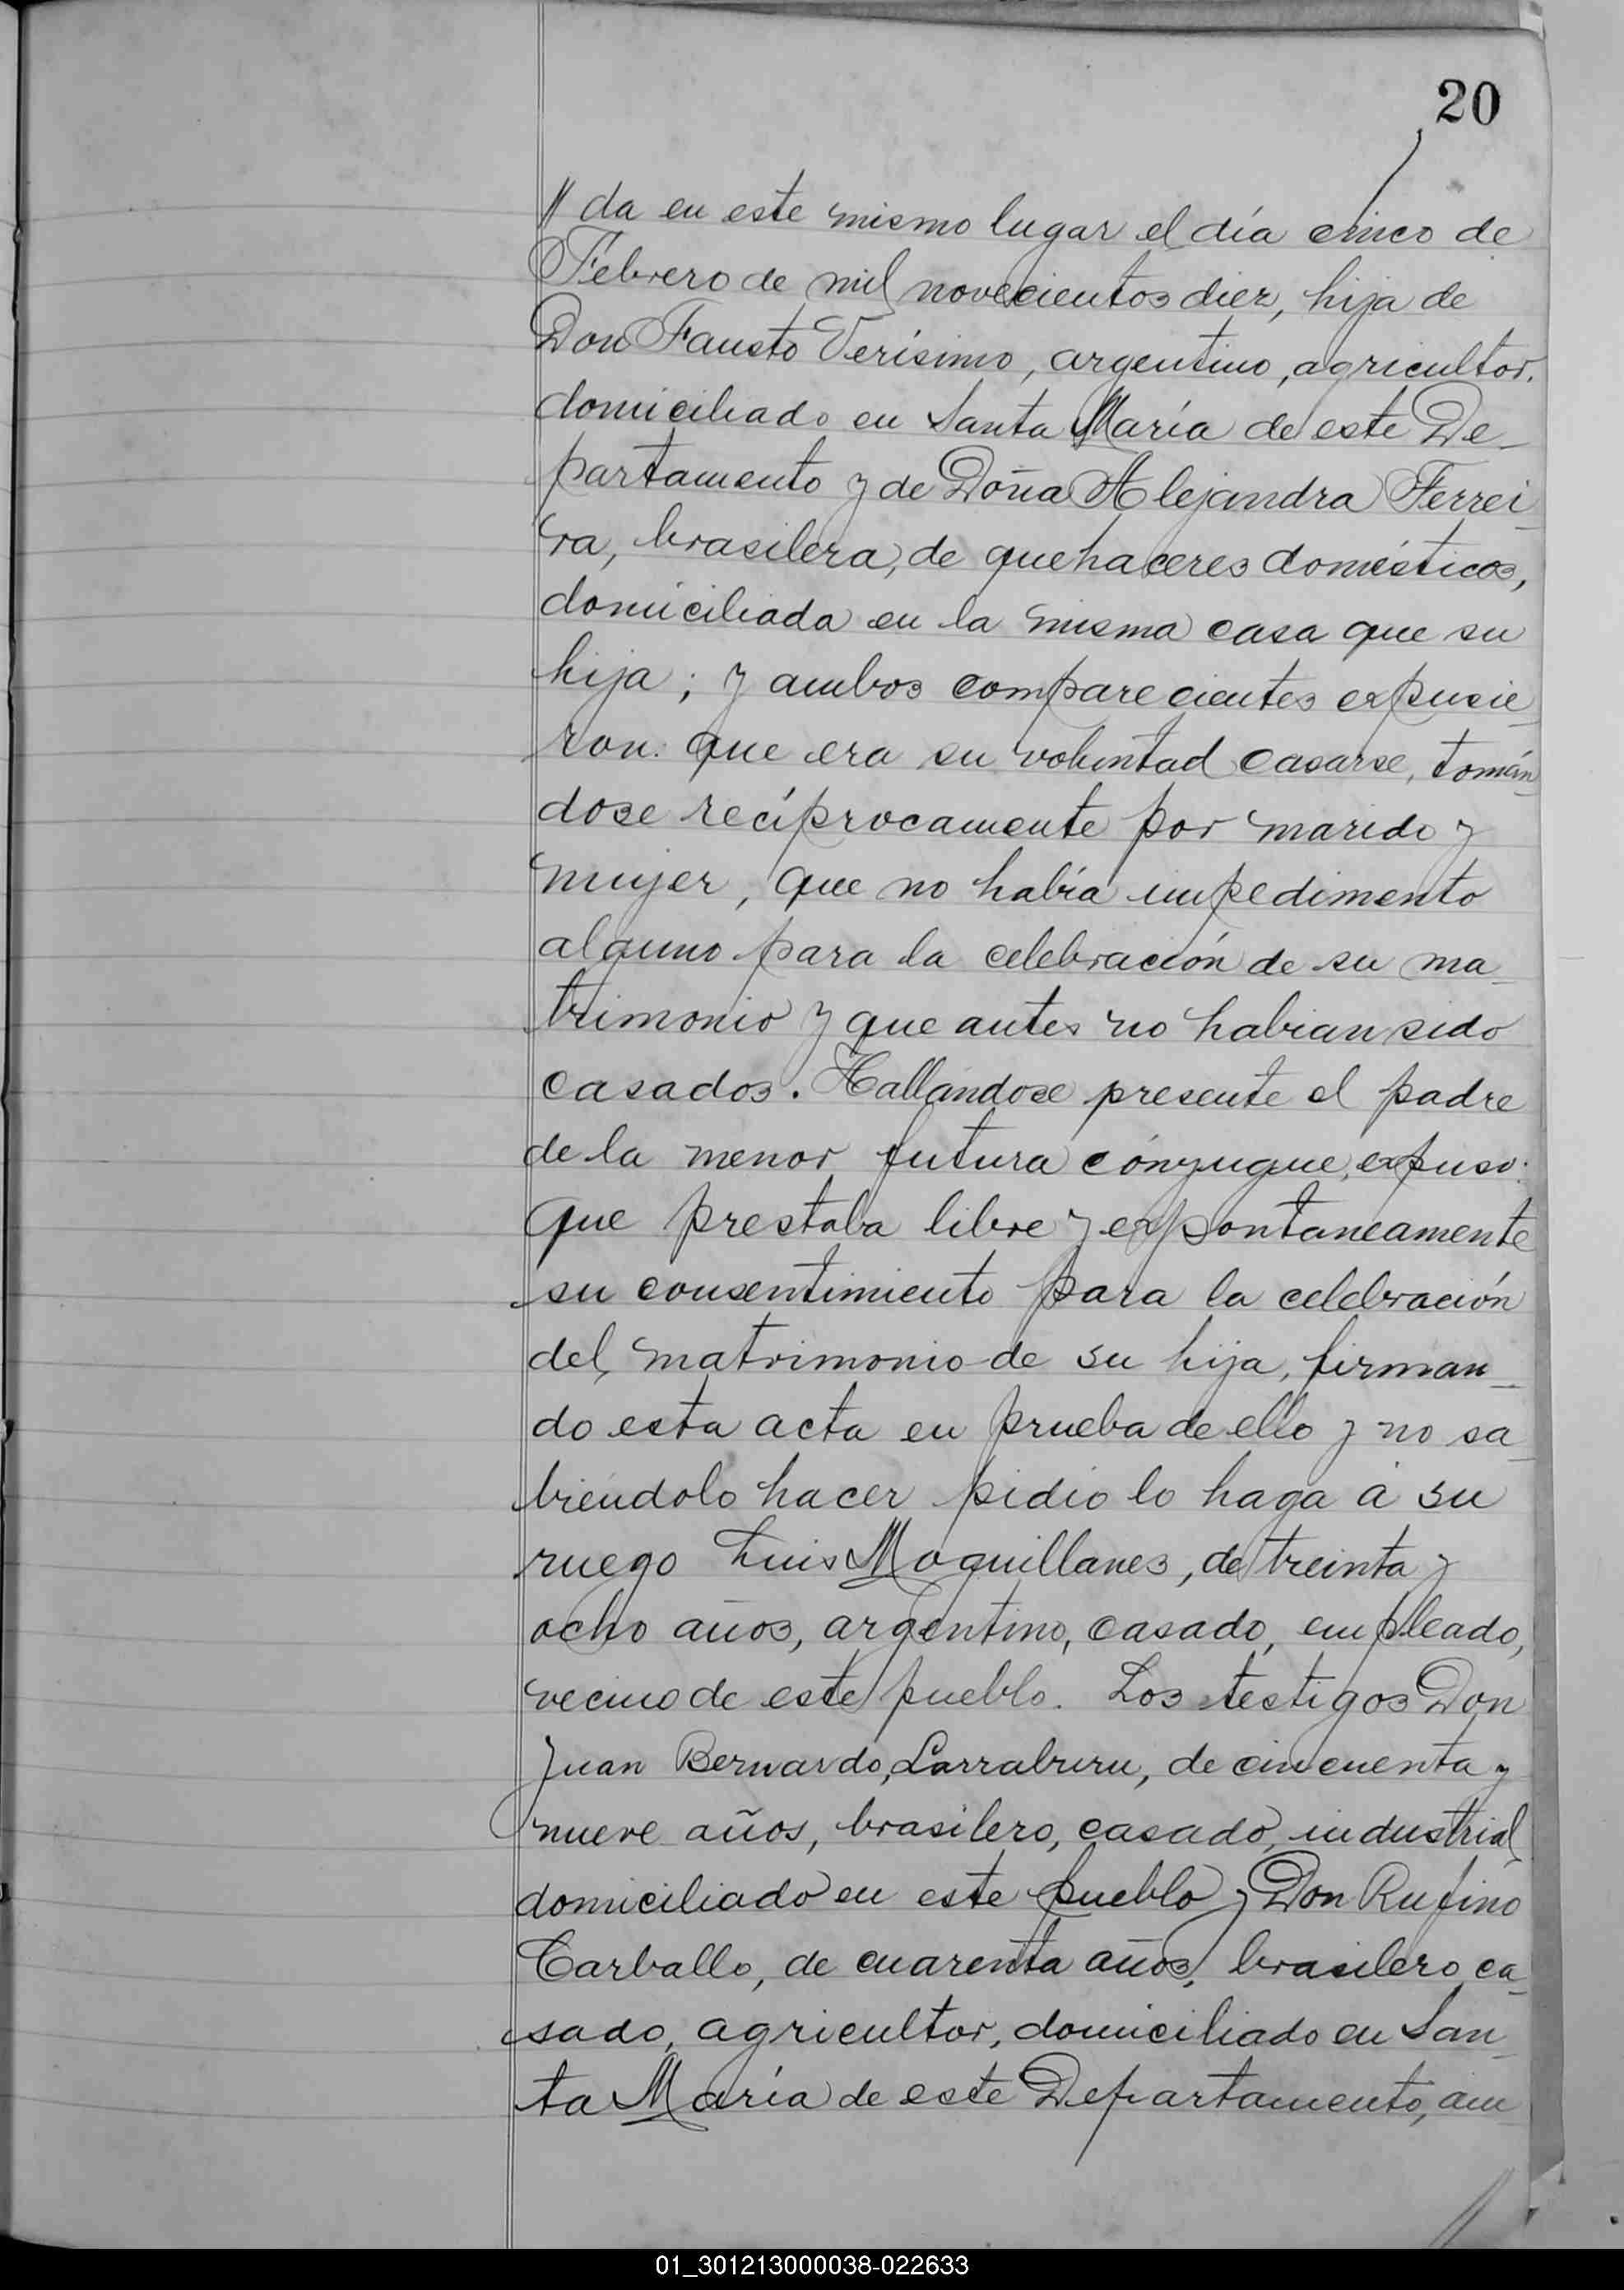 20
// da en este mismo lugar el día cinco de
Febrero de mil novecientos diez, hija de
Don Fausto Verísimo, argentino, agricultor.
domiciliado en Santa María de este De_
partamento y de Doña Alejandra Ferrei_
ra, brasilera, de quehaceres domésticos,
domiciliada en la misma casa que su
hija; y ambos comparecientes expusie_
ron: que era su voluntad casarse, tomán_
dose recíprocamente por marido y
mujer, que no había impedimento
alguno para la celebración de su ma_
trimonio y que antes no habian sido
casados. Hallándose presente el padre
de la menor futura cónyugue, expuso:
que prestaba libre y expontaneamente
su consentimiento para la celebración
del matrimonio de su hija, firman_
do esta acta en prueba de ello y no sa_
biéndolo hacer pidió lo haga á su
ruego Luis Moquillanes, de treinta y
ocho años, argentino, casado, empleado,
vecino de este pueblo. Los testigos Don
Juan Bernardo, Larraburu, de cincuenta y
nueve años, brasilero, casado, industrial,
domiciliado en este pueblo y Don Rufino
Carballo, de cuarenta años, brasilero, ca_
sado, agricultor, domiciliado en San_
ta María de este Departamento, am_
//
01_301213000038-022633